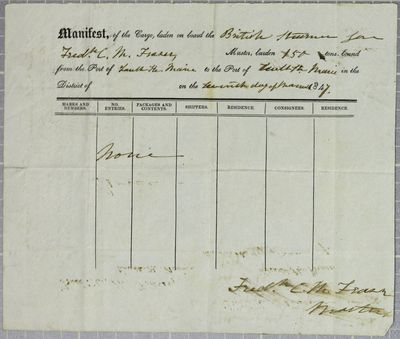 Manifest, of the Cargo, laden on board the British Steamer Gore
Fredk. C. M. Fraser, Master, burden 150 tons bound
from the Port of Sault Ste Marie to the Port of Sault Ste Marie in the
District of on the day of 1847.
MARKS AND NUMBERS. NO. ENTRIES. PACKAGES AND CONTENTS. SHIPPERS. RESIDENCE. CONSIGNEES. RESIDENCE.
None
Fredk. C. M. Fraser
Master